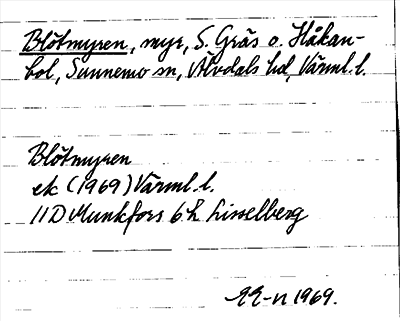 Blötmyren, myr, S. Gräs o. Håkan-
bol, Sunnemo sn, Älvdals hd, Värml. l.
Blötmyren
ek (1969) Värml. l.
11D Munkfors 6h Lisselberg
1969.